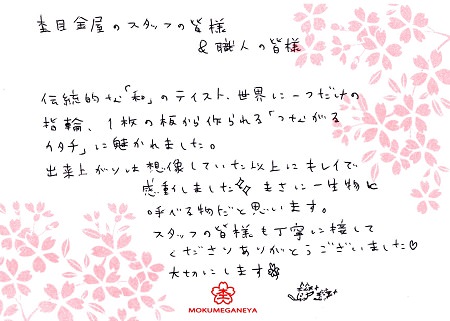 杢目金屋のスタッフの皆様
& 職人の皆様
伝統的な「和」のテイスト、世界に一つだけの
指輪、1枚の板から作られる「つながる
カタチ」に魅かれました。
出来上がりは想像していた以上にキレイで
感動しました まさに一生物と
呼べる物だと思います。
スタッフの皆様も丁寧に接して
くださりありがとうございました♡
大切にします
MOKUMEGANEYA